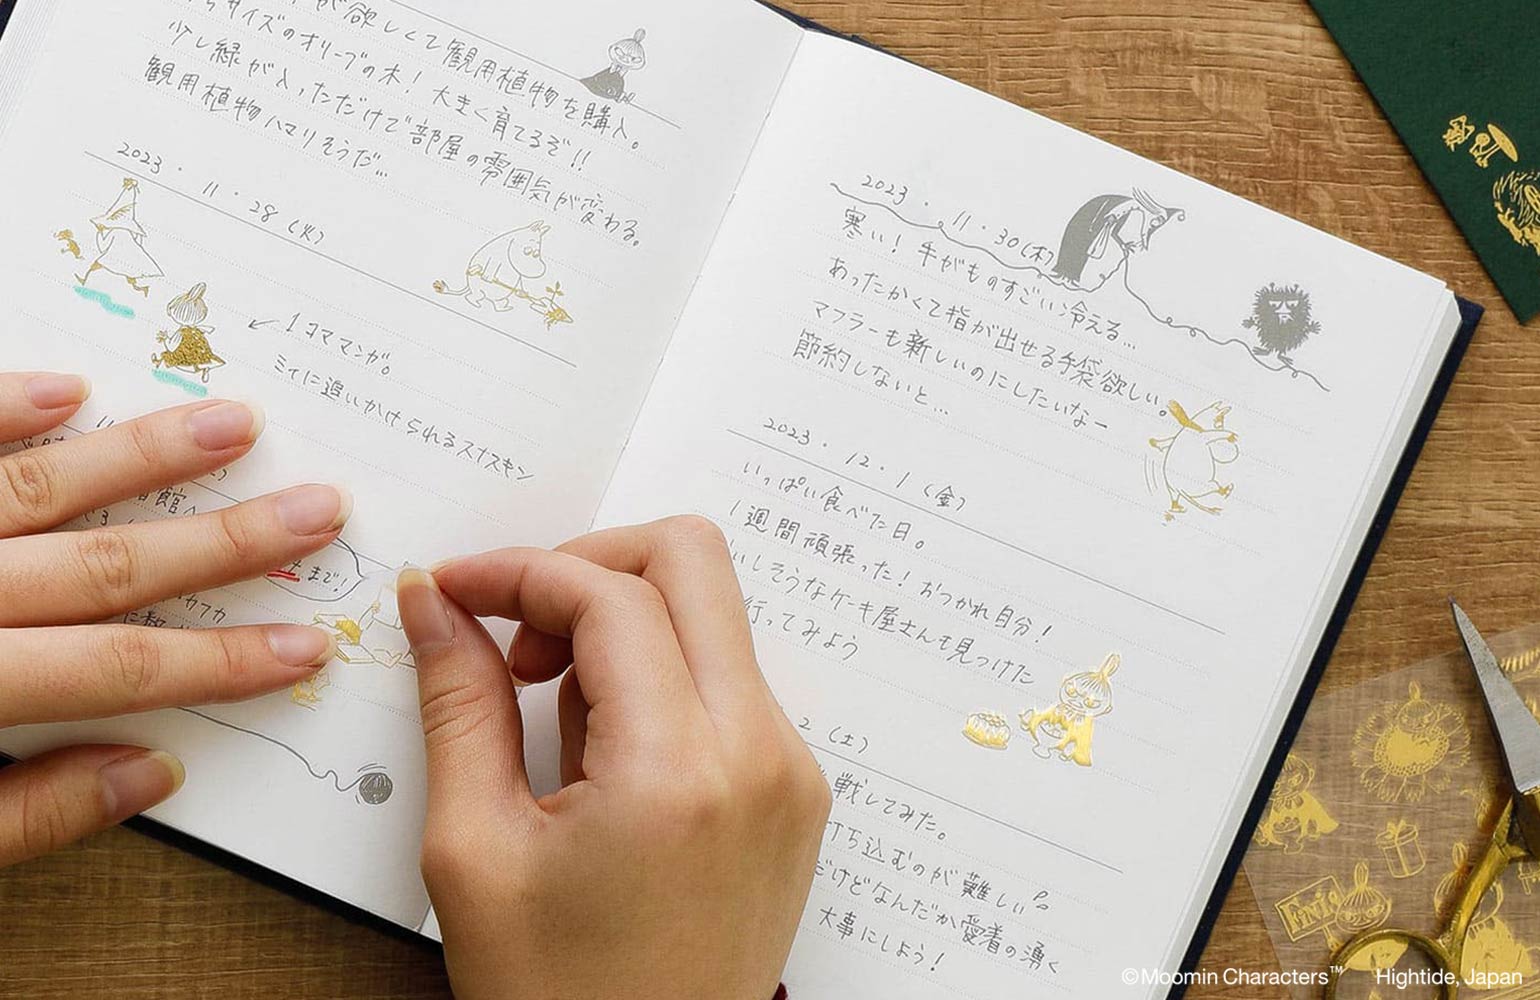 が欲しくて観用植物を購入。
サイズのオリーブの木！ 大きく育てるぞ!!
少し緑が入っただけで部屋の雰囲気が変わる。
観用植物ハマりそうだ…
2023 . 11 . 28 (火)
↙ 1コママンガ。
ミイに追いかけられるスナフキン
まで！
カフカ
2023 . 11 . 30 (木)
寒い！ 手がものすごい冷える…
あったかくて指が出せる手袋欲しい。
マフラーも新しいのにしたいなー
節約しないと…
2023 . 12 . 1 (金)
いっぱい食べた日。
1週間頑張った！ おつかれ自分！
いしそうなケーキ屋さんも見つけた
行ってみよう
2 (土)
戦してみた。
打ち込むのが難しい
だけどなんだか愛着の湧く
大事にしよう！
Finis
©Moomin Characters™ Hightide, Japan